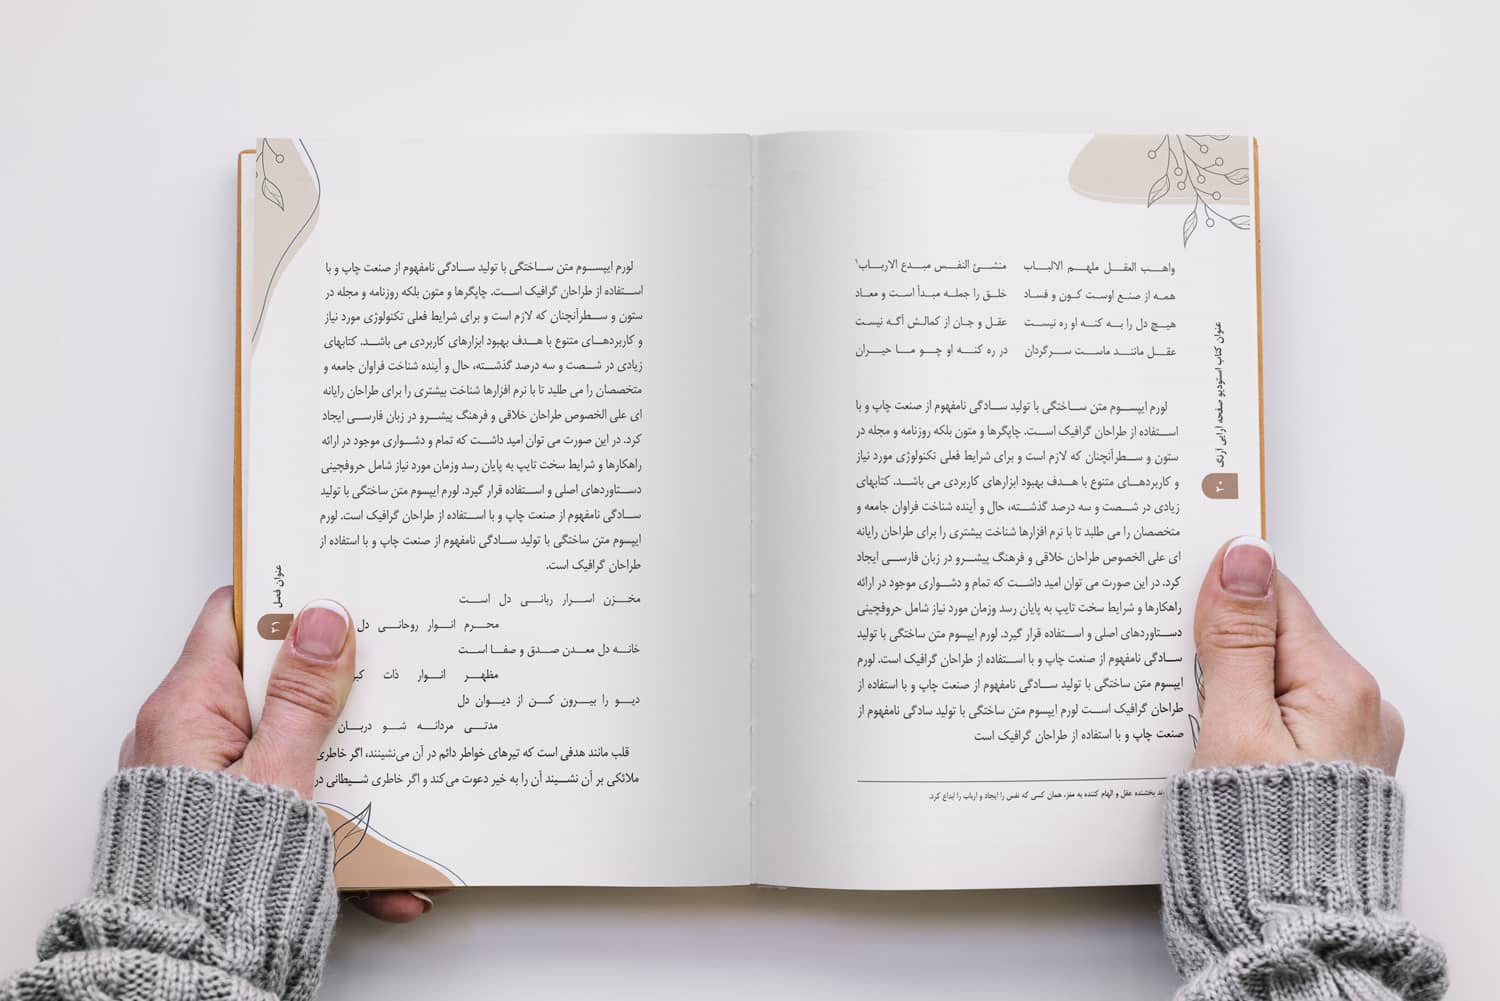 واهب العقل ملهم الالباب منشئ النفس مبدع الارباب۱
همه از صنع اوست کون و فساد خلق را جمله مبدأ است و معاد
هیچ دل را به کنه او ره نیست عقل و جان از کمالش آگه نیست
عقل مانند ماست سرگردان در ره کنه او چو ما حیران
لورم ایپسوم متن ساختگی با تولید سادگی نامفهوم از صنعت چاپ و با
استفاده از طراحان گرافیک است. چاپگرها و متون بلکه روزنامه و مجله در
ستون و سطرآنچنان که لازم است و برای شرایط فعلی تکنولوژی مورد نیاز
و کاربردهای متنوع با هدف بهبود ابزارهای کاربردی می باشد. کتابهای
زیادی در شصت و سه درصد گذشته، حال و آینده شناخت فراوان جامعه و
متخصصان را می طلبد تا با نرم افزارها شناخت بیشتری را برای طراحان رایانه
ای علی الخصوص طراحان خلاقی و فرهنگ پیشرو در زبان فارسی ایجاد
کرد. در این صورت می توان امید داشت که تمام و دشواری موجود در ارائه
راهکارها و شرایط سخت تایپ به پایان رسد وزمان مورد نیاز شامل حروفچینی
دستاوردهای اصلی و استفاده قرار گیرد. لورم ایپسوم متن ساختگی با تولید
سادگی نامفهوم از صنعت چاپ و با استفاده از طراحان گرافیک است. لورم
ایپسوم متن ساختگی با تولید سادگی نامفهوم از صنعت چاپ و با استفاده از
طراحان گرافیک است لورم ایپسوم متن ساختگی با تولید سادگی نامفهوم از
صنعت چاپ و با استفاده از طراحان گرافیک است
بخشنده عقل و الهام کننده به مغز، همان کسی که نفس را ایجاد و ارباب را ابداع کرد.
عنوان کتاب استودیو صفحه آرایی آرنگ
۲۰
لورم ایپسوم متن ساختگی با تولید سادگی نامفهوم از صنعت چاپ و با
استفاده از طراحان گرافیک است. چاپگرها و متون بلکه روزنامه و مجله در
ستون و سطرآنچنان که لازم است و برای شرایط فعلی تکنولوژی مورد نیاز
و کاربردهای متنوع با هدف بهبود ابزارهای کاربردی می باشد. کتابهای
زیادی در شصت و سه درصد گذشته، حال و آینده شناخت فراوان جامعه و
متخصصان را می طلبد تا با نرم افزارها شناخت بیشتری را برای طراحان رایانه
ای علی الخصوص طراحان خلاقی و فرهنگ پیشرو در زبان فارسی ایجاد
کرد. در این صورت می توان امید داشت که تمام و دشواری موجود در ارائه
راهکارها و شرایط سخت تایپ به پایان رسد وزمان مورد نیاز شامل حروفچینی
دستاوردهای اصلی و استفاده قرار گیرد. لورم ایپسوم متن ساختگی با تولید
سادگی نامفهوم از صنعت چاپ و با استفاده از طراحان گرافیک است. لورم
ایپسوم متن ساختگی با تولید سادگی نامفهوم از صنعت چاپ و با استفاده از
طراحان گرافیک است.
مخزن اسرار ربانی دل است
محرم انوار روحانی دل
خانه دل معدن صدق و صفا است
مظهر انوار ذات
دیو را بیرون کن از دیوان دل
مدتی مردانه شو دربان
قلب مانند هدفی است که تیرهای خواطر دائم در آن می‌نشینند، اگر خاطری
ملائکی بر آن نشیند آن را به خیر دعوت می‌کند و اگر خاطری شیطانی در
عنوان فصل
۲۱